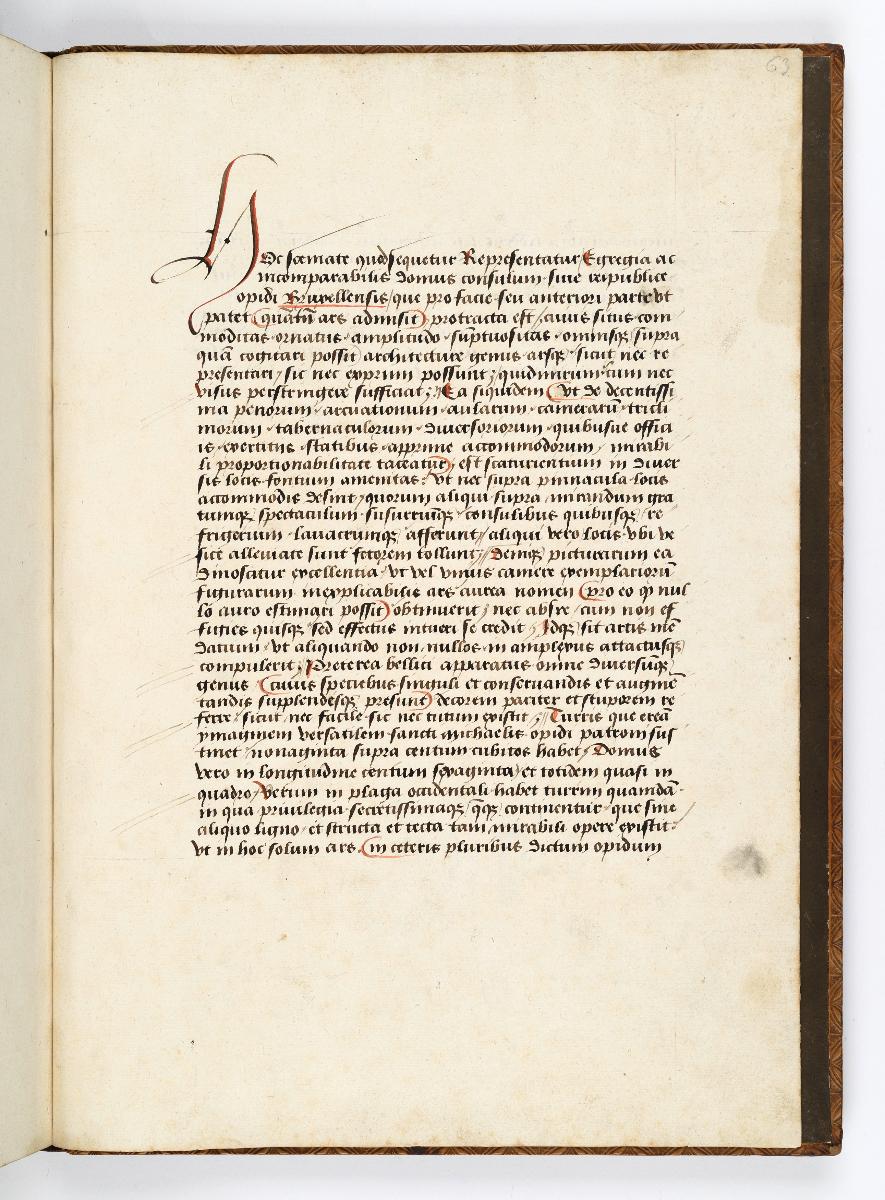 63
Hoc scemate quod sequetur Representatur Egregia ac
incomparabilis domus consulum siue reipublice
opidi Bruxellensis / que pro facie seu anteriori parte vt
patet (quātū ars admisit) protracta est / cuius situs com
moditas ornatus amplitudo sūptuositas omnisqꝫ supra
quā cogitari possit architecture genus atqꝫ sicut nec re
presentari / sic nec exprimi possunt / quid mirum cum nec
visus perstringere sufficiat / Ea siquidem (vt de decentissi
ma penorum arcuationum aularum camerarū tricli
niorum tabernaculorum diuersoriorum quibusue offici
is exercitiis statibus apprime accommodorum / mirabi
li proportionabilitate taceatur) est scaturientium in diuer
sis locis fontium amenitas / vt nec supra pinnacula locis
accommodis desint / quorum aliqui supra mirandum gra
tumqꝫ spectaculum susurrūqꝫ consulibus quibusqꝫ / re
frigerium lauacrumqꝫ afferunt / aliqui vero locis vbi ve
sice alleuiate sunt fetorem tollunt // Demqꝫ picturarum ea
dinoscitur excellentia / vt vel vnius camere exemplariorū
figurarum inexplicabilis ars aurea nomen (pro eo qꝫ nul
lo auro estimari possit) obtinuerit / nec absre / cum non ef
figies quisqꝫ sed effectus intueri se credit / Idqꝫ sit artis mē
datum / vt aliquando non nullos in amplexus attactusqꝫ
compulerit / Preterea bellici apparatus omne diuersūqꝫ
genus (cuius speciebus singuli et conseruandis et augmē
tandis supplendesqꝫ presunt) decorem pariter et stuporem re
ferre / sicut nec facile sic nec tutum existit / Turris que ereā
ymaginem versatilem sancti michaelis opidi patroni sus
tinet / nonaginta supra centum cubitos habet / Domus
vero in longitudine centum sexaginta / et totidem quasi in
quadro / Verum in plaga occidentali habet turrim quamdā
in qua priuilegia secretissimaqꝫ qꝫqꝫ continentur que sine
aliquo ligno et structa et tecta tam mirabili opere existit
vt in hoc solum ars (in ceteris pluribus dictum opidum